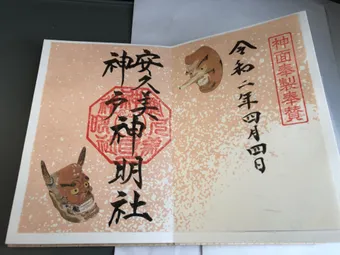 神面奉製奉賛
令和二年四月四日
安久美
神戸神明社